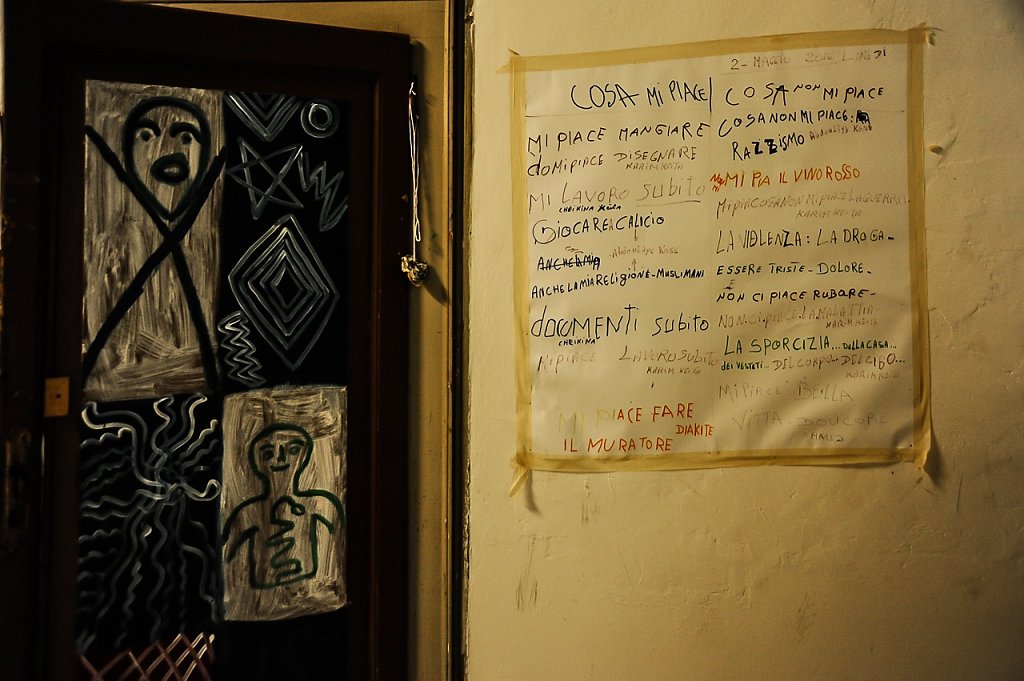 2 - MAGGIO 2016 LUNEDI
COSA MI PIACE
MI PIACE MANGIARE
dOMIPIACE DISEGNARE
KARIM KEITA
MI LAVORO SUBITO
CHEIKINA Keita
GIOCARE A CALICIO
Abdoulaye Kone
ANCHE LA MIA
ANCHE LA MIA RELIGIONE - MUSLIMANI
DOCUMENTI SUBITO
CHEIKINA
MI PIACE LAVORO SUBITO
KARIM KEITA
MI PIACE FARE
DIAKITE
IL MURATORE
COSA NON MI PIACE
COSA NON MI PIACE:
RAZZISMO Abdoulaye Kone
MI PIA IL VINO ROSSO
MI PIACOSANON MI PIACE LA GUERRA.
KARIM KEITA
LA VIOLENZA: LA DROGA -
ESSERE TRISTE - DOLORE -
E
NON CI PIACE RUBARE -
NON CI PIACE LA MALATTIA -
KARIM KEITA
LA SPORCIZIA... DELLA CASA...
DEI VESTATI... DEL CORPO.. DEL CIBO...
KARIM KEITA
MI PIACE BEILLA
VITTA DOUCORE
HMED